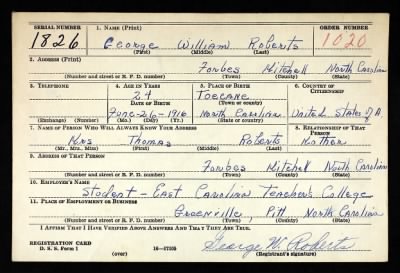 SERIAL NUMBER 1. NAME (Print) ORDER NUMBER
1826 George William Roberts 1020
(First) (Middle) (Last)
2. ADDRESS (Print)
Forbes Mitchell North Carolina
(Number and street or R. F. D. number) (Town) (County) (State)
3. TELEPHONE 4. AGE IN YEARS 5. PLACE OF BIRTH 6. COUNTRY OF CITIZENSHIP
24 Toecane
DATE OF BIRTH (Town or county)
June-26-1916 North Carolina United States of A.
(Exchange) (Number) (Mo.) (Day) (Yr.) (State or country)
7. NAME OF PERSON WHO WILL ALWAYS KNOW YOUR ADDRESS 8. RELATIONSHIP OF THAT PERSON
Mrs Thomas Roberts Mother
(Mr., Mrs., Miss) (First) (Middle) (Last)
9. ADDRESS OF THAT PERSON
Forbes Mitchell North Carolina
(Number and street or R. F. D. number) (Town) (County) (State)
10. EMPLOYER'S NAME
Student - East Carolina Teacher's College
11. PLACE OF EMPLOYMENT OR BUSINESS
Greenville, Pitt North Carolina
(Number and street or R. F. D. number) (Town) (County) (State)
I AFFIRM THAT I HAVE VERIFIED ABOVE ANSWERS AND THAT THEY ARE TRUE.
George W. Roberts
REGISTRATION CARD
D. S. S. Form 1 (over) 16—17105 (Registrant's signature)